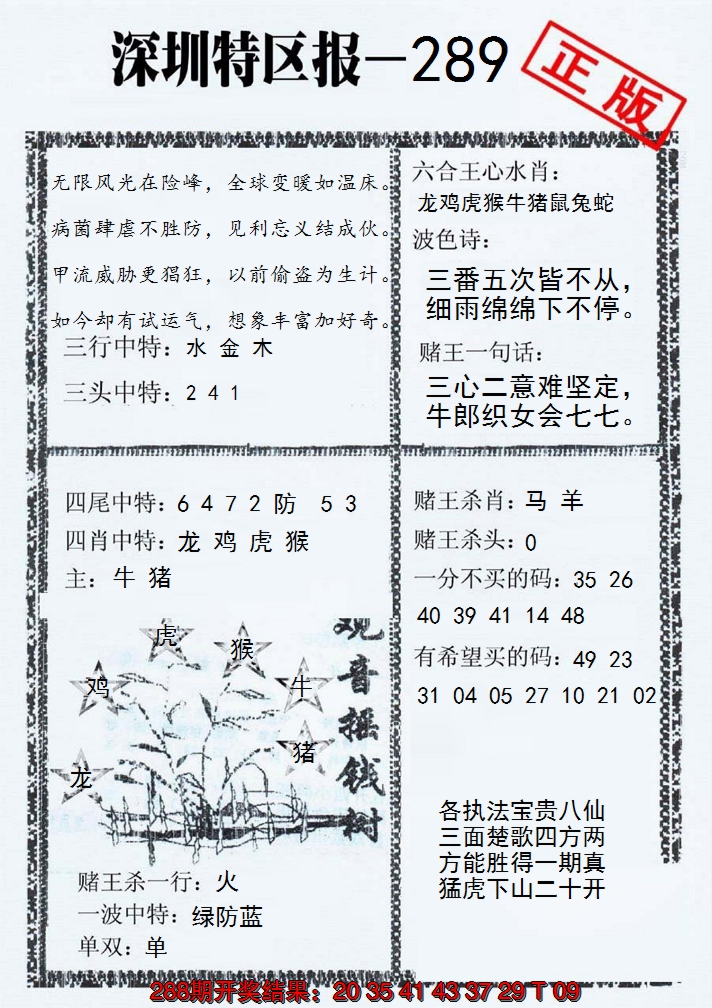 深圳特区报—289
正版
无限风光在险峰，全球变暖如温床。
病菌肆虐不胜防，见利忘义结成伙。
甲流威胁更猖狂，以前偷盗为生计。
如今却有试运气，想象丰富加好奇。
三行中特：水 金 木
三头中特：2 4 1
六合王心水肖：
龙鸡虎猴牛猪鼠兔蛇
波色诗：
三番五次皆不从，
细雨绵绵下不停。
赌王一句话：
三心二意难坚定，
牛郎织女会七七。
四尾中特：6 4 7 2 防 5 3
四肖中特：龙 鸡 虎 猴
主：牛 猪
虎
猴
鸡
牛
猪
龙
观音摇钱树
赌王杀一行：火
一波中特：绿防蓝
单双：单
赌王杀肖：马 羊
赌王杀头：0
一分不买的码：35 26
40 39 41 14 48
有希望买的码：49 23
31 04 05 27 10 21 02
各执法宝贵八仙
三面楚歌四方两
方能胜得一期真
猛虎下山二十开
288期开奖结果：20 35 41 43 37 29 T 09